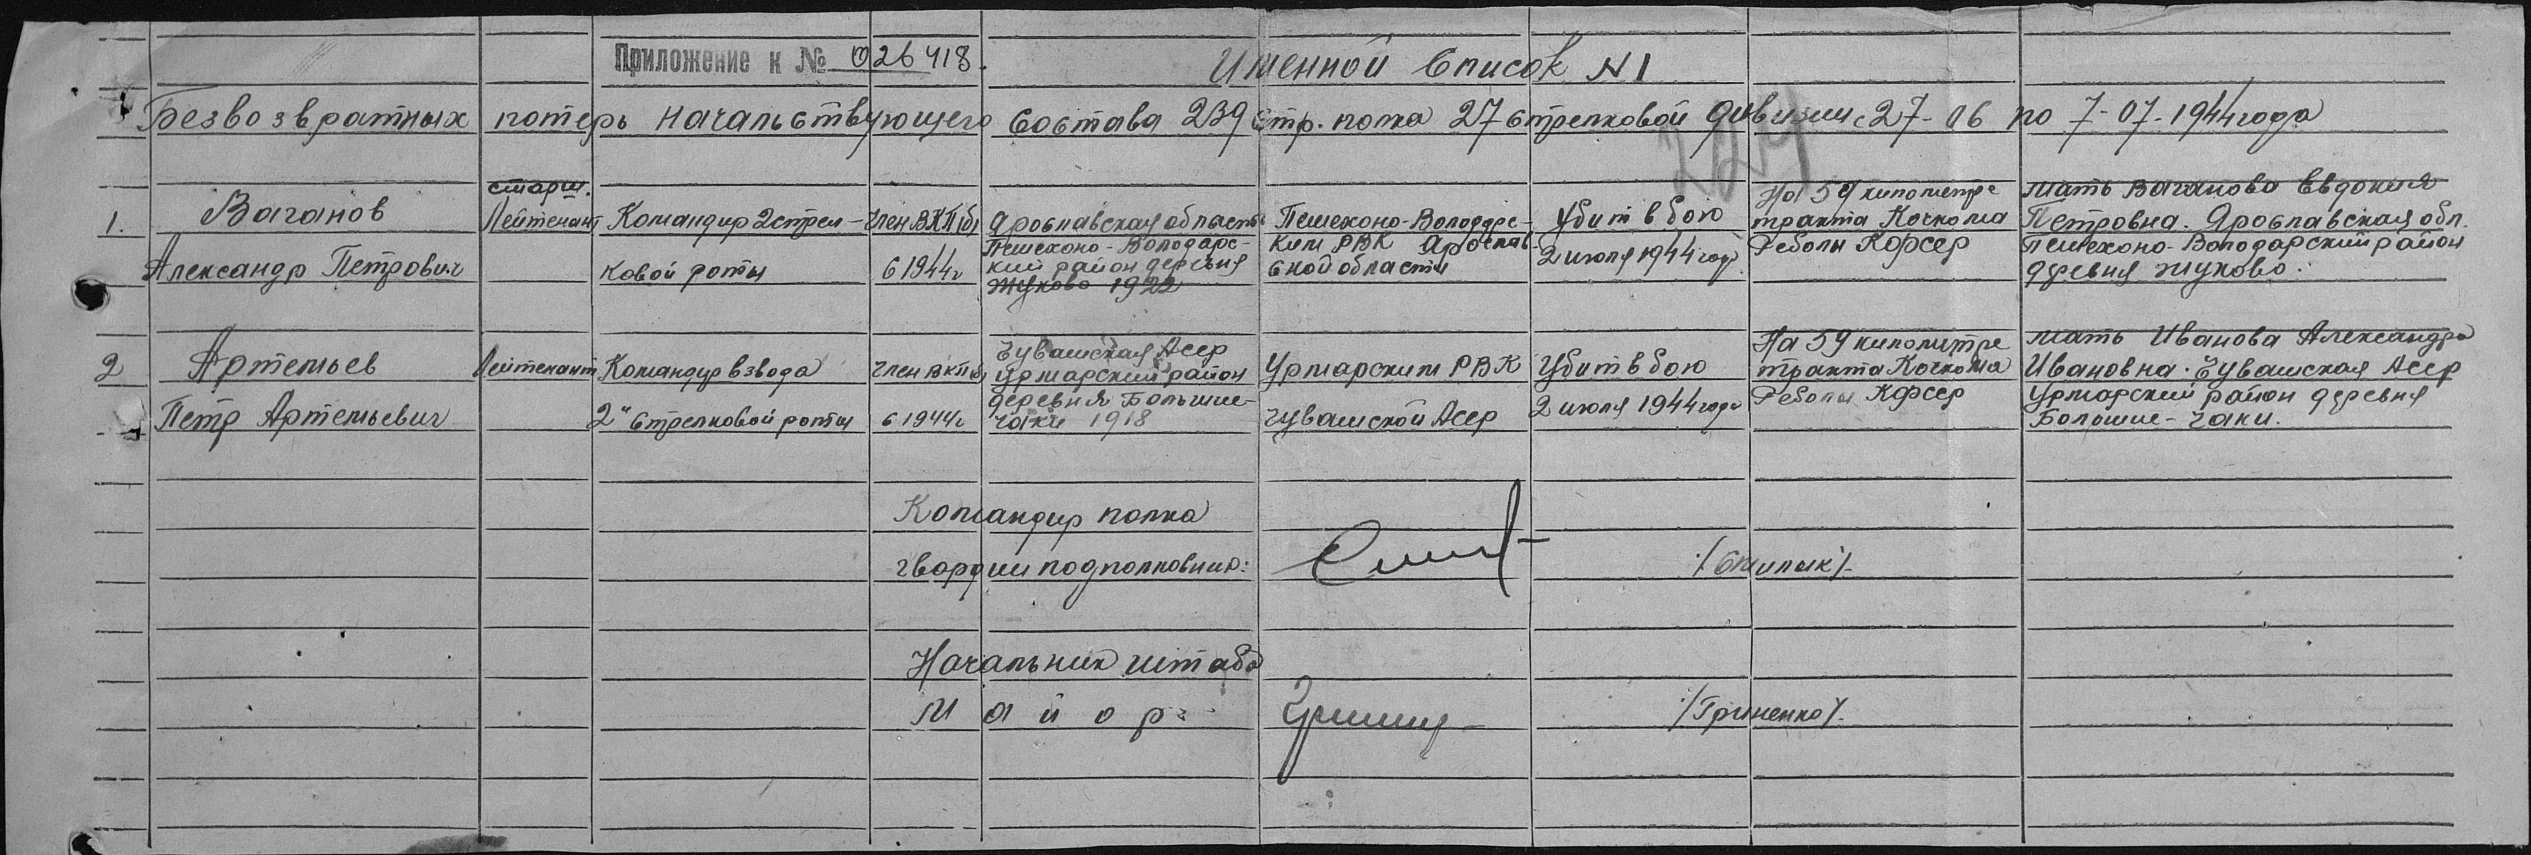 Приложение к № 026418.
Именной Список N1
Безвозвратных потерь начальствующего состава 239 стр. полка 27 стрелковой дивизии с 27-06 по 7-07-1944 года
1.
Ваганов
Александр Петрович
старш.
Лейтенант
Командир 2 стрел-
ковой роты
член ВКП(б)
с 1944г
Ярославская область
Пешехоно-Володарс-
кий район деревня
Жуково 1922
Пешехоно-Володарс-
ким РВК Ярослав-
ской области
Убит в бою
2 июля 1944 года
На 59 километре
тракта Кочкома
Реболы Кфсср
мать Ваганова Евдокия
Петровна. Ярославская обл.
Пешехоно-Володарский район
деревня Жуково.
2
Артемьев
Петр Артемьевич
Лейтенант
Командир взвода
2й стрелковой роты
член ВКП(б)
с 1944г
Чувашская Асср
Урмарский район
деревня Большие-
чаки 1918
Урмарским РВК
Чувашской Асср
Убит в бою
2 июля 1944 года
На 59 километре
тракта Кочкома
Реболы Кфсср
мать Иванова Александра
Ивановна. Чувашская Асср
Урмарский район деревня
Большие-чаки.
Командир полка
гвардии подполковник:
/Смилык/-
Начальник штаба
Майор:
/Гриненко/-